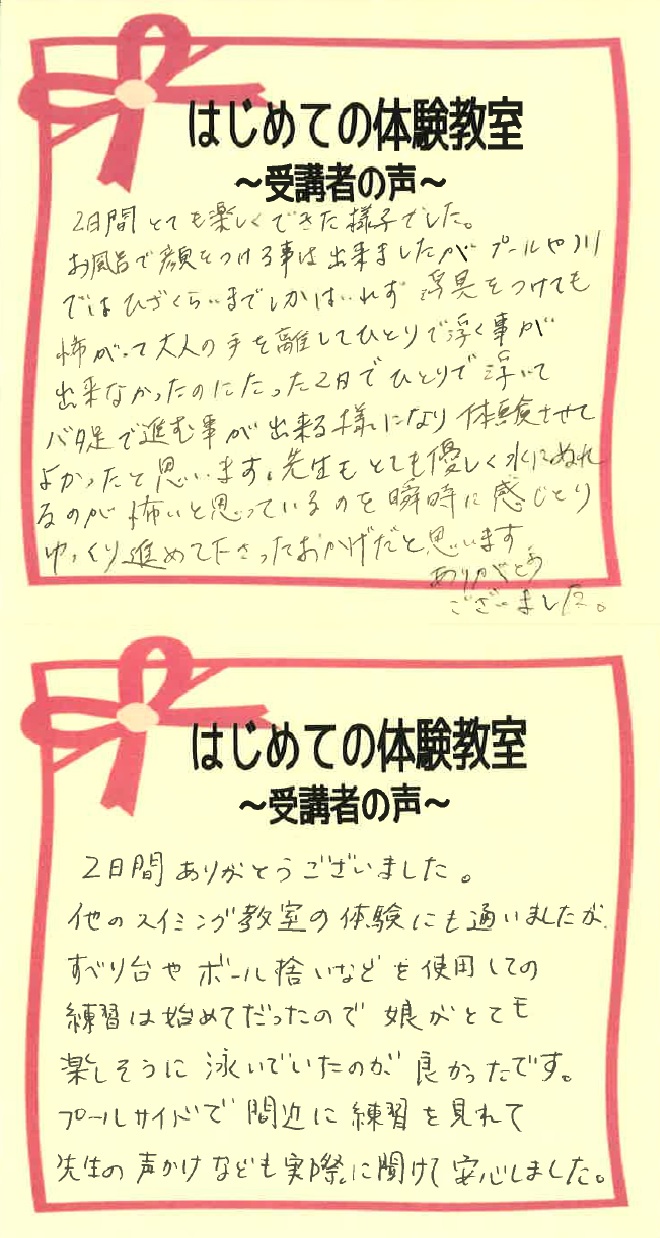 はじめての体験教室
～受講者の声～
2日間とても楽しくできた様子でした。
お風呂で顔をつける事は出来ましたがプールや川
ではひざくらいまでしかはいれず浮具をつけても
怖がって大人の手を離してひとりで浮く事が
出来なかったのにたった2日でひとりで浮いて
バタ足で進む事が出来る様になり体験させて
よかったと思います。先生もとても優しく水にぬれ
るのが怖いと思っているのを瞬時に感じとり
ゆっくり進めて下さったおかげだと思います
ありがとう
ございました。
はじめての体験教室
～受講者の声～
2日間ありがとうございました。
他のスイミング教室の体験にも通いましたが、
すべり台やボール捨いなどを使用しての
練習は始めてだったので娘がとても
楽しそうに泳いでいたのが良かったです。
プールサイドで間近に練習を見れて
先生の声かけなども実際に聞けて安心しました。